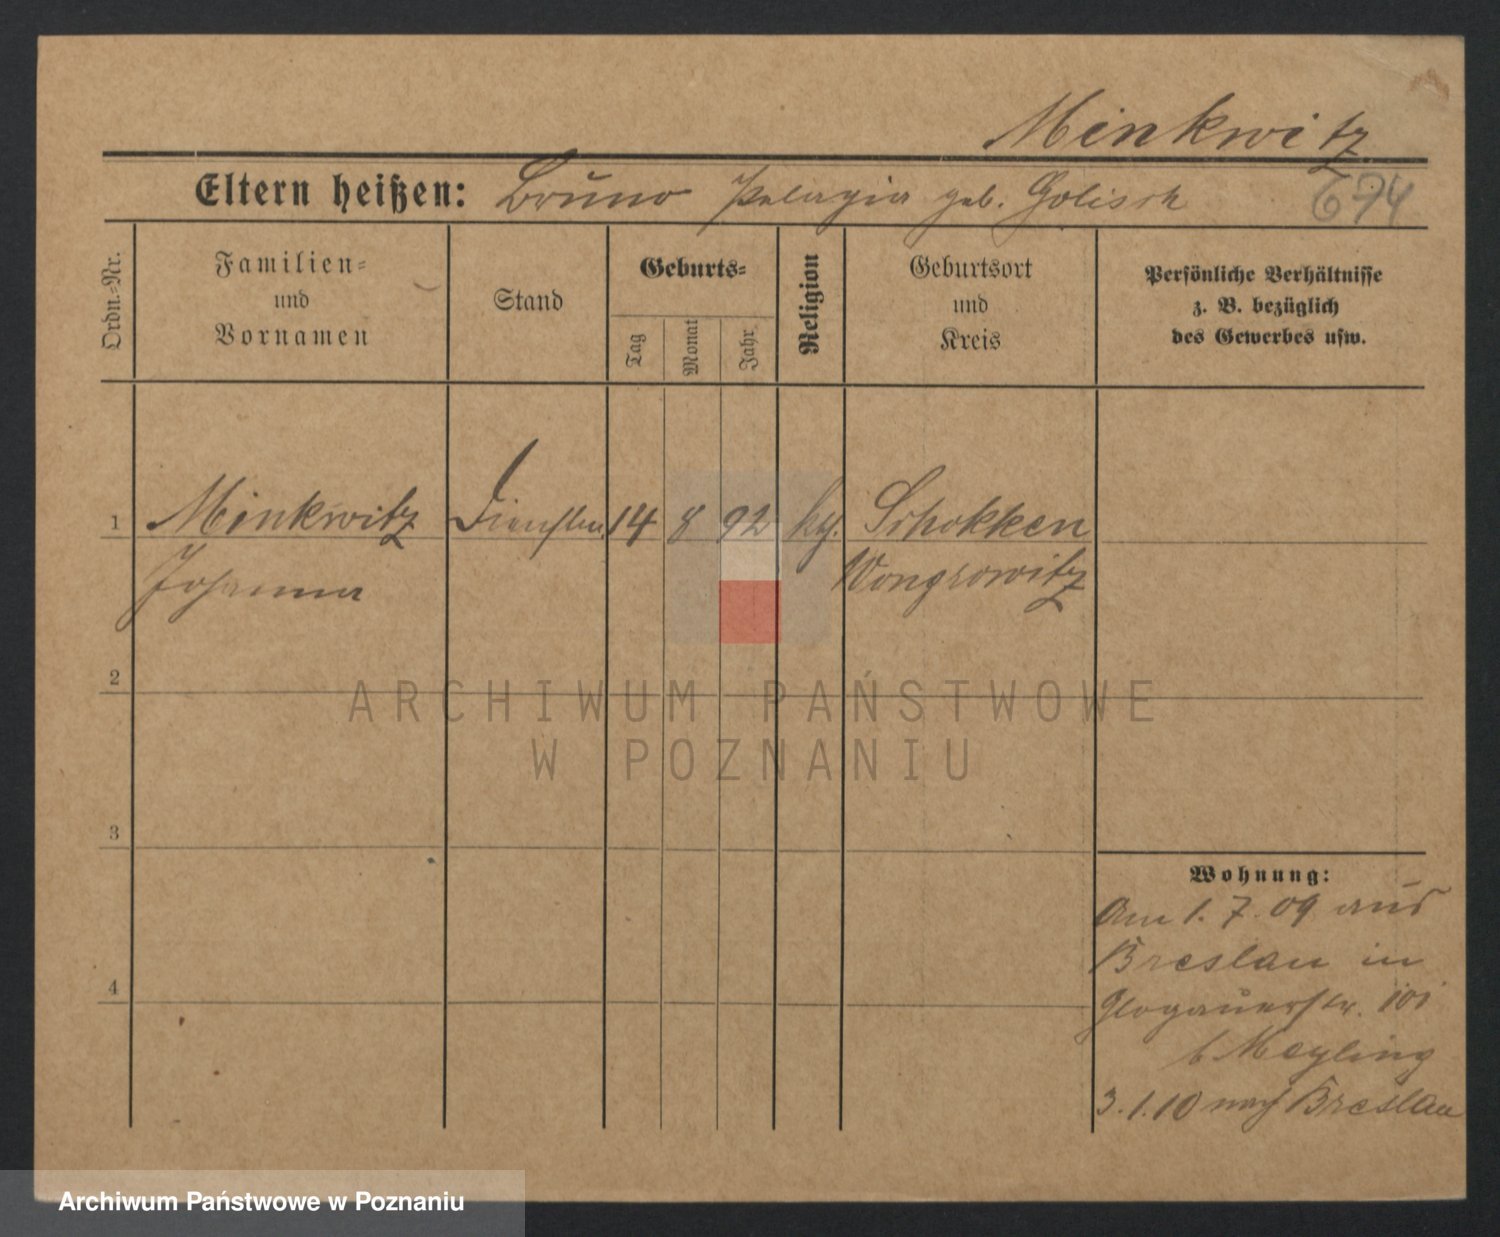 Minkwitz
Eltern heißen: Bruno Pelagia geb. Golisch
674
Ordn.-Nr.
Familien-
und
Vornamen
Stand
Geburts-
Tag
Monat
Jahr
Religion
Geburtsort
und
Kreis
Persönliche Verhältnisse
z. B. bezüglich
des Gewerbes usw.
1 Minkwitz 14 8 92 Schokken
Johanna Wongrowitz
2
ARCHIWUM PAŃSTWOWE
W POZNANIU
3
Wohnung:
Am 1.7.09 aus
Breslau in
4
Glogauerstr. 101
b Meyling
3.1.10 nach Breslau
Archiwum Państwowe w Poznaniu